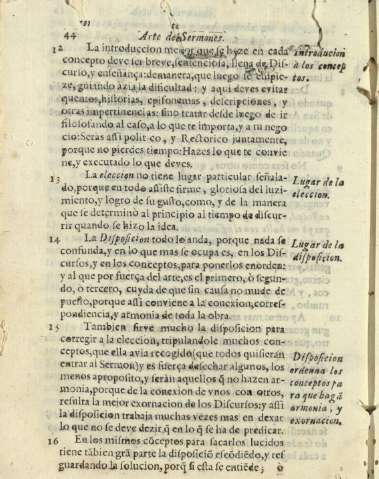 44 Arte de Sermones.
12 La introduccion menor que se haze en cada
concepto deve ser breve, sentenciosa, llena de Dis-
curso, y enseñança: de manera, que luego se empie-
ze, guiando azia la dificultad; y aqui deves evitar
quentos, historias, episonemas, descripciones, y
otras impertinencias: sino tratar desde luego de ir
filosofando al caso, a lo que te importa, y a tu nego
cio: Seràs assi politico, y Rectorico juntamente,
porque no pierdes tiempo: Hazes lo que te convie
ne, y executado lo que deves.
Introducion
à los concep
tos.
13 La eleccion no tiene lugar particular señala-
do, porque en todo assiste firme, gloriosa del luzi-
miento, y logro de su gusto, como, y de la manera
que se determinò al principio al tiempo de discur-
rir quando se hizo la idea.
Lugar de la
eleccion.
14 La Disposicion todo lo anda, porque nada se
confunda, y en lo que mas se ocupa es, en los Dis-
cursos, y en los conceptos, para ponerlos en orden:
y al que por fuerça del arte, es el primero, ò segun-
do, ò tercero, cuyda de que sin causa no mude de
puesto, porque assi conviene a la conexion, corres-
pondiencia, y armonia de toda la obra.
Lugar de la
disposicion.
15 Tambien sirve mucho la disposicion para
corregir a la eleccion, tripulandole muchos con-
ceptos, que ella avia recogido (que todos quisieran
entrar al Sermon) y es fuerça desechar algunos, los
menos aproposito, y seràn aquellos q̃ no hazen ar-
monia, porque de la conexion de vnos con otros,
resulta la mejor exornacion de los Discursos; y assi
la disposicion trabaja muchas vezes mas en dexar
lo que no se deve dezir, q̃ en lo q̃ se ha de predicar.
Disposicion
ordenna los
conceptos pa
ra que bagã
armonia, y
exornacion.
16 En los mismos cõceptos para sacarlos lucidos
tiene tãbien grã parte la disposiciõ escõdiẽdo, y res
guardando la solucion, porq̃ si esta se entiẽde, ò